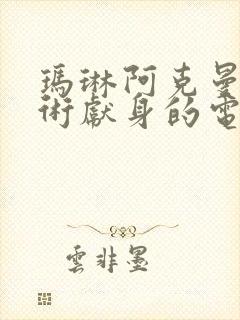 瑪琳阿克曼
術獻身的電
雲非墨